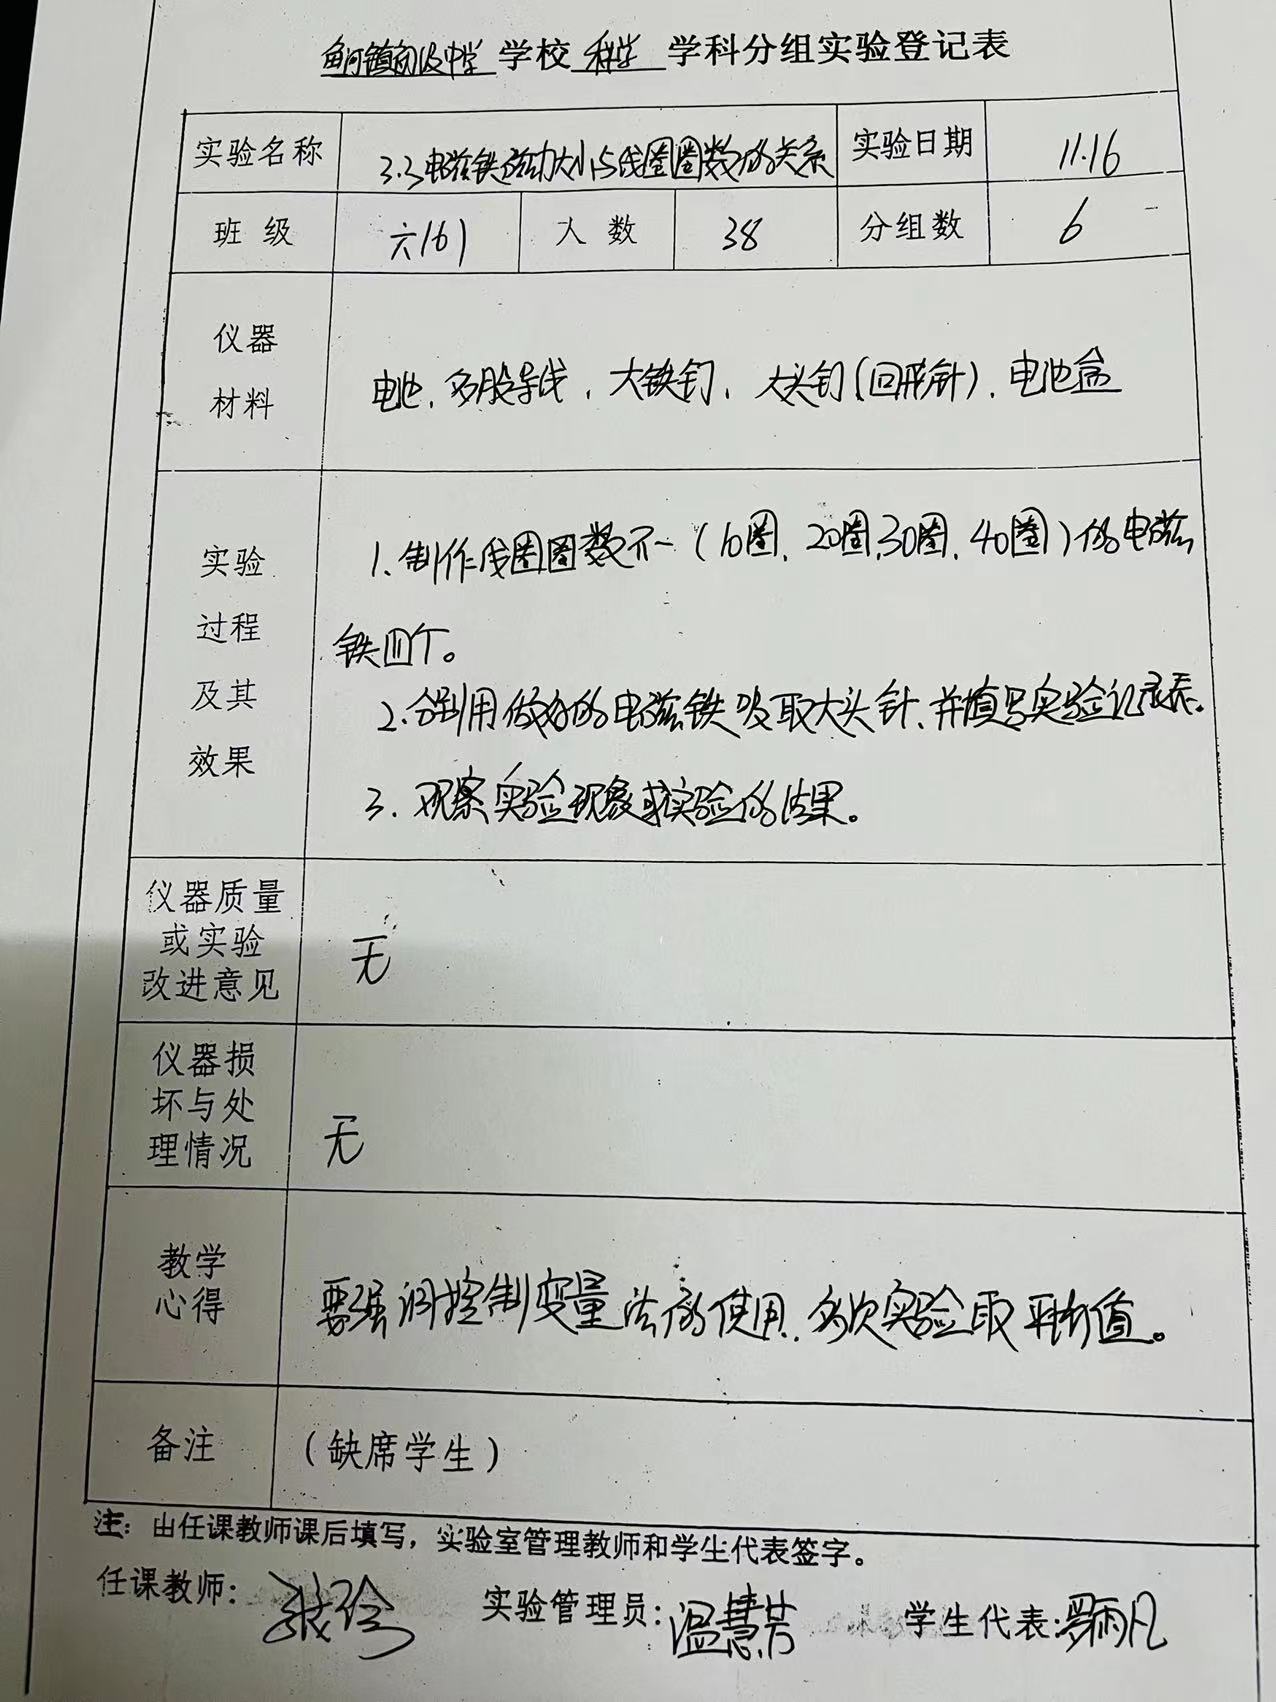 鱼河镇初级中学 学校 科学 学科分组实验登记表
实验名称 3.3电磁铁磁力大小与线圈圈数的关系 实验日期 11.16
班 级 六(6) 人 数 38 分组数 6
仪器材料 电池、多股导线、大铁钉、大头钉(回形针)、电池盒
实验过程及其效果 1.制作线圈圈数不一(10圈、20圈、30圈、40圈)的电磁
铁四个。
2.分别用做好的电磁铁吸取大头针,并填写实验记录表。
3.观察实验现象或实验的结果。
仪器质量或实验改进意见 无
仪器损坏与处理情况 无
教学心得 要强调控制变量法的使用,多次实验取平均值。
备注 (缺席学生)
注:由任课教师课后填写,实验室管理教师和学生代表签字。
任课教师: 实验管理员:温慧芳 学生代表:雨凡